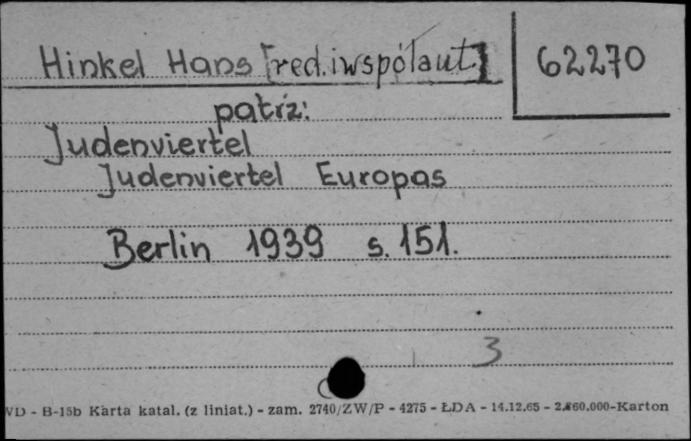 Hinkel Hans [red. iwspółaut.]
62270
patrz:
Judenviertel
Judenviertel Europas
Berlin 1939 s. 151.
3
VD - B-15b Karta katal. (z liniat.) - zam. 2740/ZW/P - 4275 - ŁDA - 14.12.65 - 2.860.000-Karton